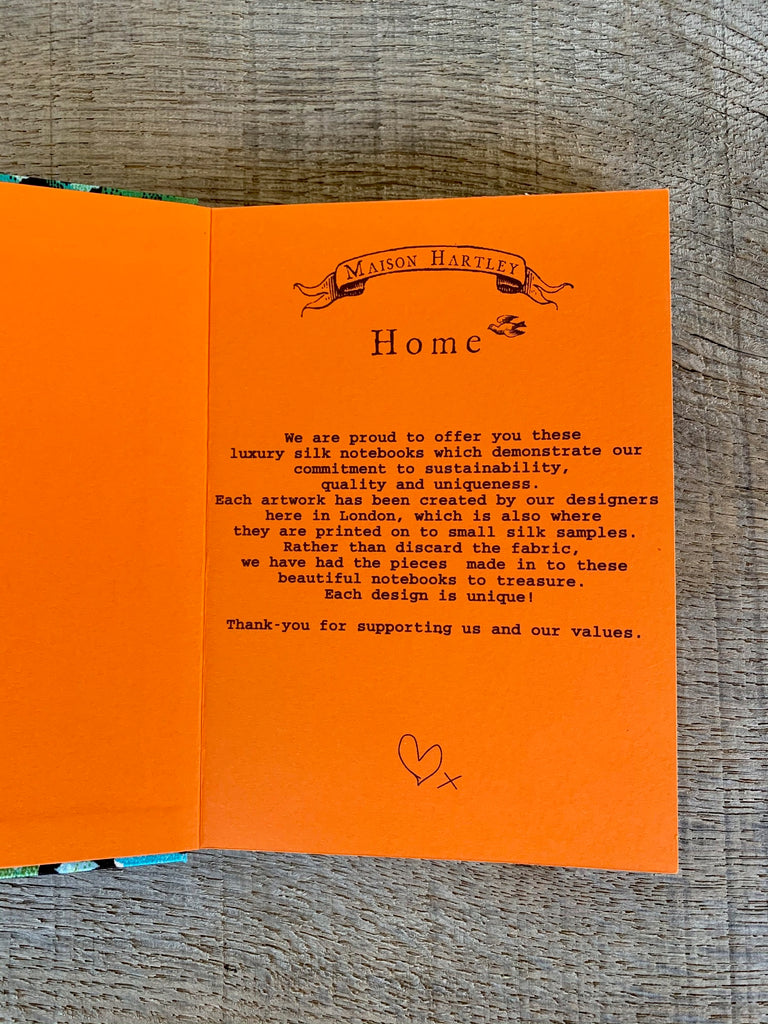 MAISON HARTLEY
Home
We are proud to offer you these
luxury silk notebooks which demonstrate our
commitment to sustainability,
quality and uniqueness.
Each artwork has been created by our designers
here in London, which is also where
they are printed on to small silk samples.
Rather than discard the fabric,
we have had the pieces  made in to these
beautiful notebooks to treasure.
Each design is unique!
Thank-you for supporting us and our values.
x